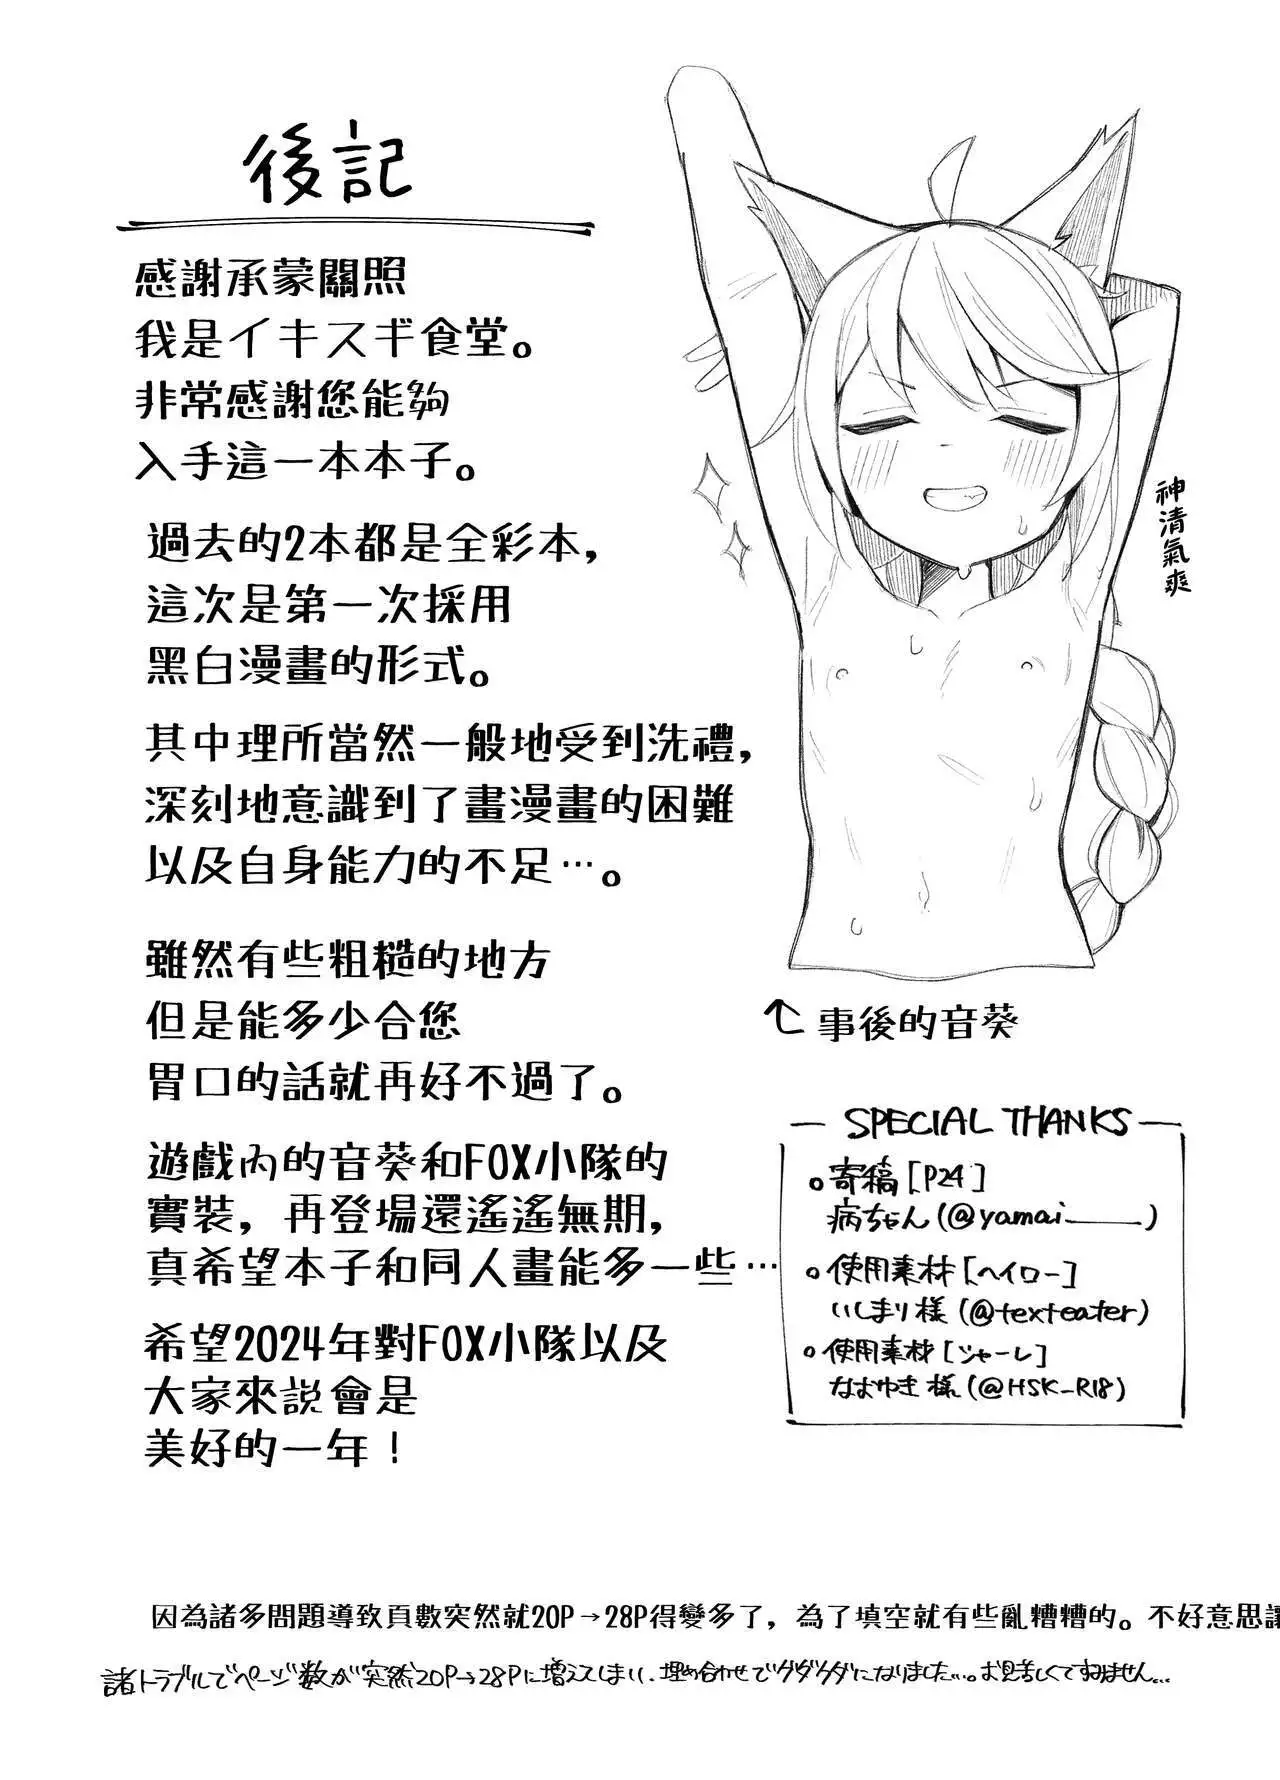 後記
感謝承蒙關照
我是イキスギ食堂。
非常感謝您能夠
入手這一本本子。
過去的2本都是全彩本，
這次是第一次採用
黑白漫畫的形式。
其中理所當然一般地受到洗禮，
深刻地意識到了畫漫畫的困難
以及自身能力的不足…。
雖然有些粗糙的地方
但是能多少合您
胃口的話就再好不過了。
遊戲內的音葵和FOX小隊的
實裝，再登場還遙遙無期，
真希望本子和同人畫能多一些…
希望2024年對FOX小隊以及
大家來説會是
美好的一年！
神清氣爽
事後的音葵
SPECIAL THANKS
寄稿[P24]
病ちゃん(@yamai____)
使用素材[ヘイロー]
いしまり様(@texteater)
使用素材[シャーレ]
なおゆき様(@HSK_R18)
因為諸多問題導致頁數突然就20P→28P得變多了，為了填空就有些亂糟糟的。不好意思讓
諸トラブルでページ数が突然20P→28Pに増えてしまい、埋め合わせでグダグダになりました…。お見苦しくてすみません…